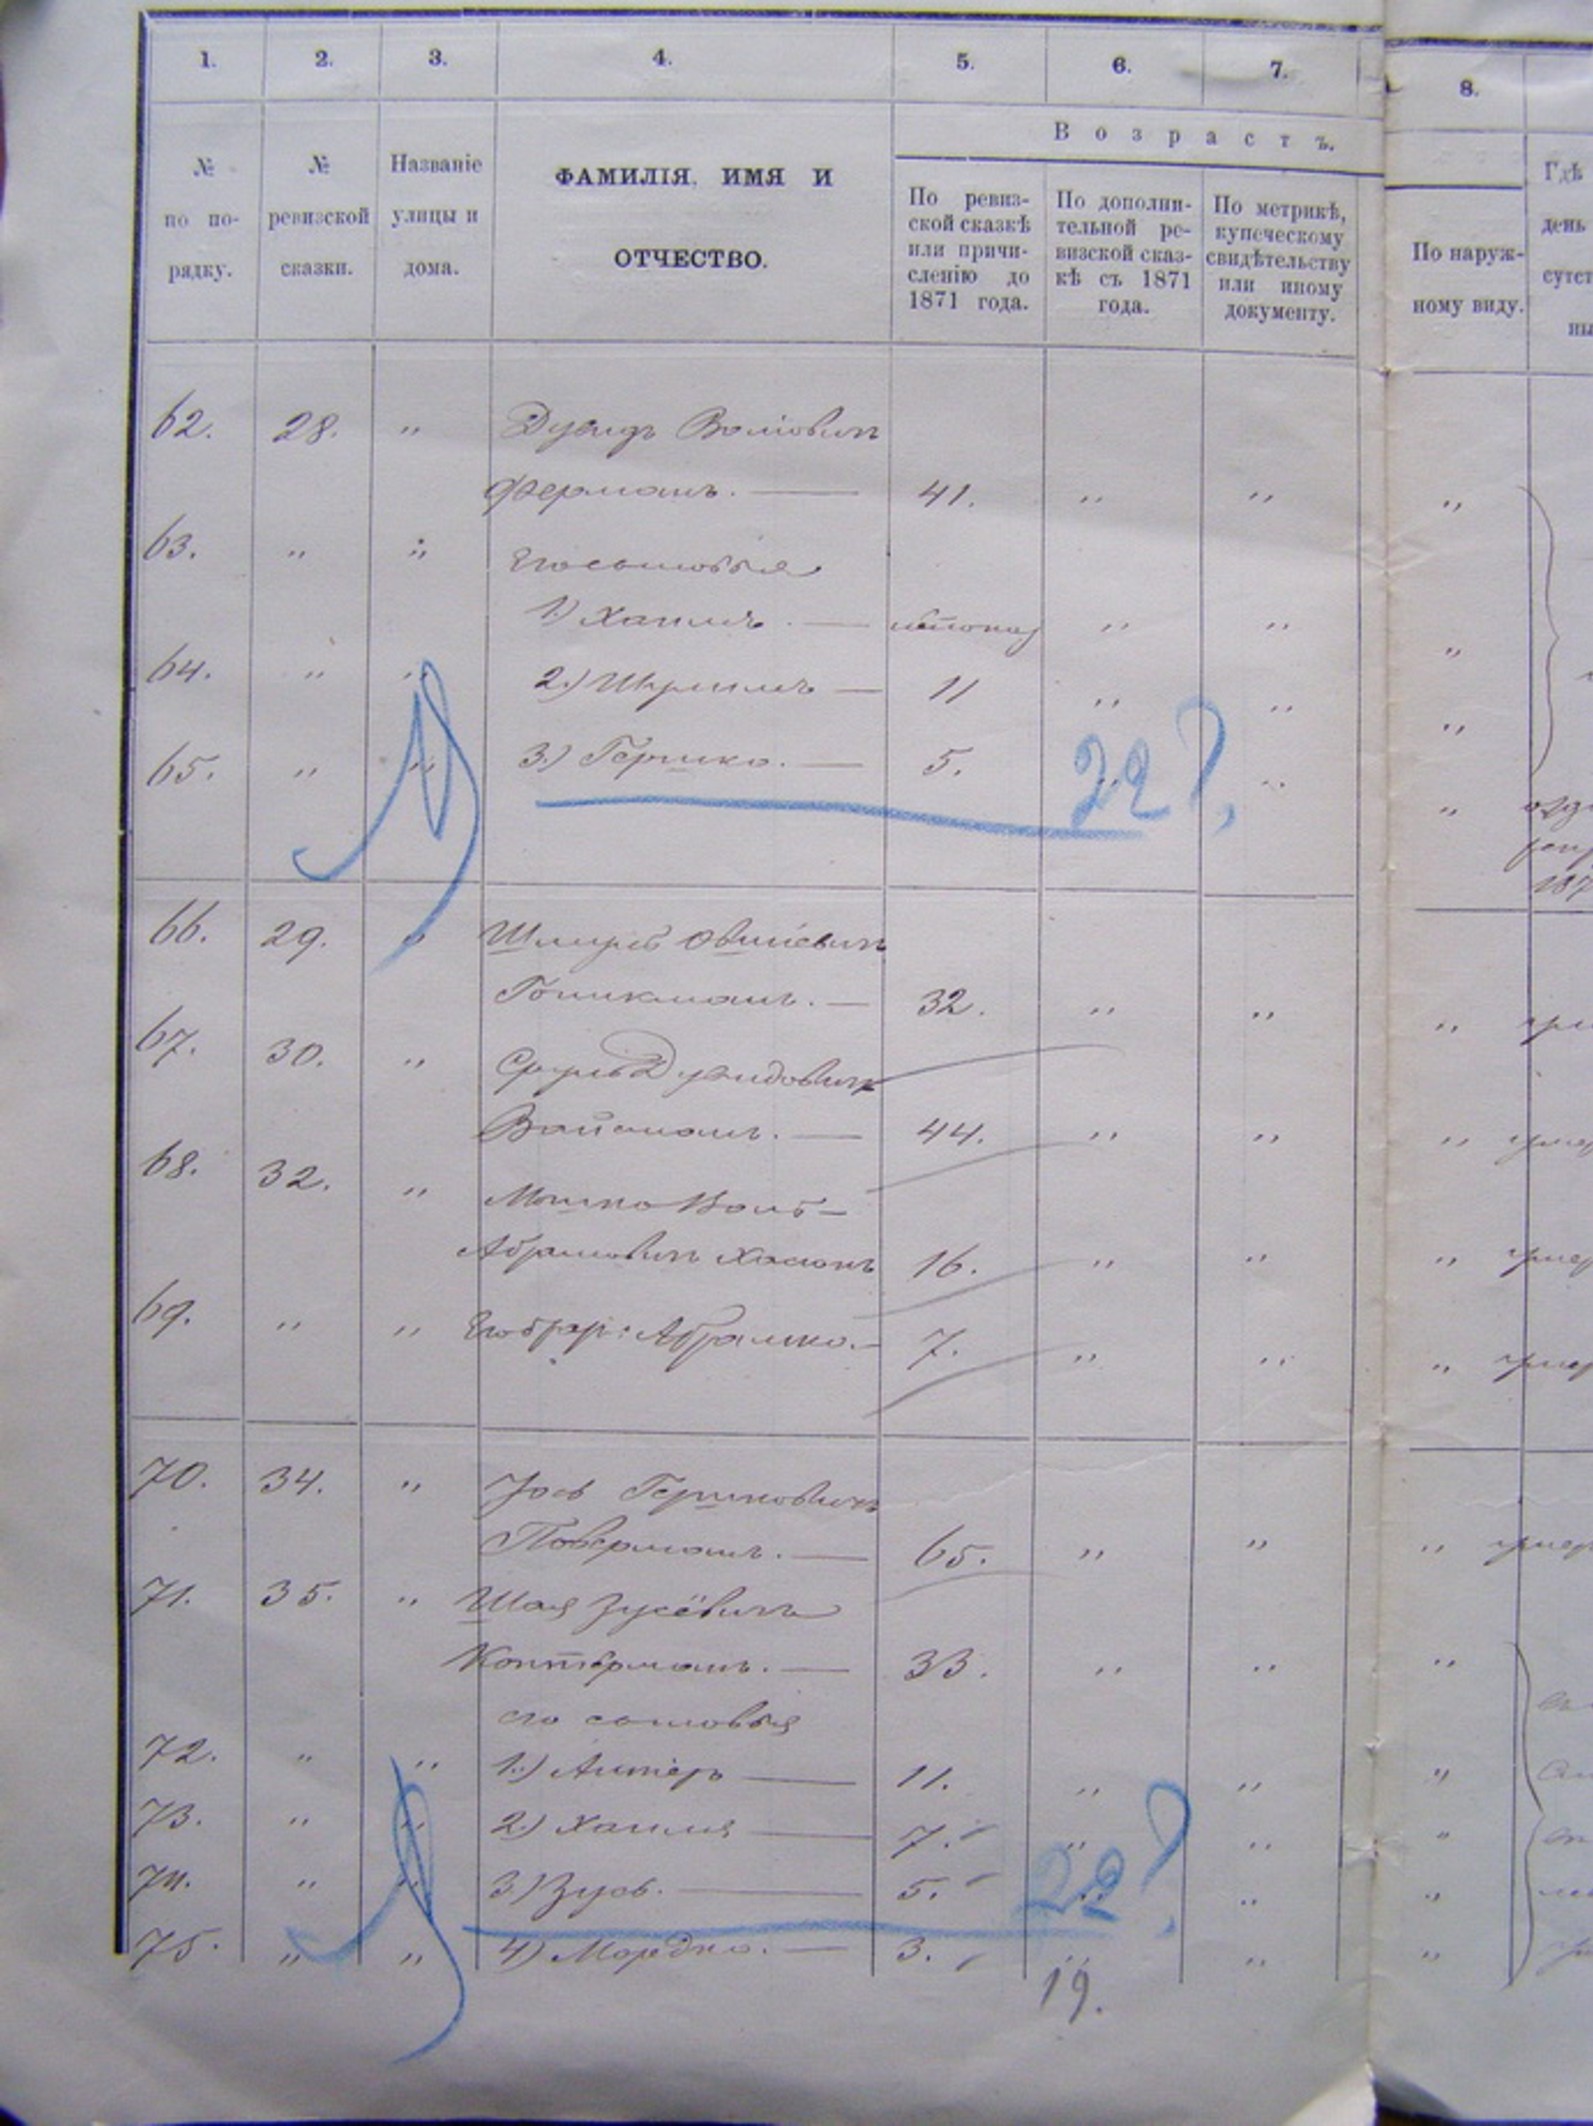 1. 2. 3. 4. 5. 6. 7. 8.
Возрастъ.
№ по порядку.
№ ревизской сказки.
Названіе улицы и дома.
ФАМИЛІЯ, ИМЯ И
ОТЧЕСТВО.
По ревиз-
ской сказкѣ
или причи-
сленію до
1871 года.
По дополни-
тельной ре-
визской сказ-
кѣ съ 1871
года.
По метрикѣ,
купеческому
свидѣтельству
или иному
документу.
По наруж-
ному виду.
Гдѣ
день
сутст
62. 28. " Дувидъ Волговичъ
Ферманъ. — 41. " " "
63. " " Его сыновья
1.) Хаимъ. — " " "
64. " " 2.) Шулимъ — 11 " " "
65. " " 3.) Гершко. — 5. " " "
22?
187
66. 29. " Шмуль Овшіевичъ
Гойхманъ. — 32. " " "
67. 30. " Сруль Дувидовичъ
Вайсманъ. — 44. " " "
68. 32. " Мошко Волъ-
Абрамовичъ Хасинъ 16. " " "
69. " " Его бра: Абрамко. — 7. " " "
70. 34. " Іось Гершковичъ
Поверманъ. — 65. " " "
71. 35. " Шая Зусёвичъ
Контерманъ. — 33. " " "
его сыновья
72. " " 1.) Алтеръ — 11. " " "
73. " " 2.) Хаимъ — 7. " " "
74. " " 3.) Зусь. — 5. " " "
22?
75. " " 4.) Мордко. — 3. " " "
19.